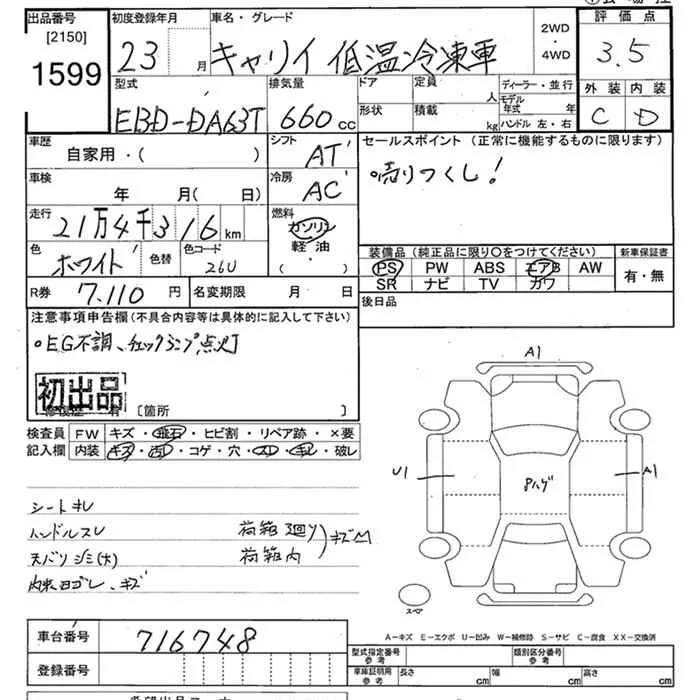 出品番号 初度登録年月 車名・グレード 2WD 評価点
[2150]
1599 23月 キャリイ 低温冷凍車 ・4WD 3.5
型式 排気量 ドア 定員 人 ディーラー・並行 外装 内装
EBD-DA63T 660cc 形状 積載 kg モデル年式 年 ハンドル 左・右 C D
車歴 シフト セールスポイント(正常に機能するものに限ります)
自家用・( ) AT 売りつくし!
車検 冷房
年 月(日) AC
走行 燃料
21万4千316km ガソリン
軽油・
( )
色 色替 色コード 装備品(純正品に限り〇をつけてください) 新車保証書
ホワイト 26U PS PW ABS エアB AW 有・無
SR ナビ TV カワ
R券 7.110円 名変期限 月 日 後日品
注意事項申告欄(不具合内容等は具体的に記入して下さい)
・EG不調、チェックランプ点灯
初出品
修復歴 有 [箇所 ]
検査員 FW キズ・飛石・ヒビ割・リペア跡・×要
記入欄 内装 キズ・汚レ・コゲ・穴・スレ・キレ・破レ
シートキレ
ハンドルスレ 荷箱廻り
天バリシミ(大) 荷箱内 キズM
内装ヨゴレ、キズ
A1
U1 ハゲ A1
スペア
A-キズ E-エクボ U-凹み W-補修跡 S-サビ C-腐食 XX-交換済
車台番号 716748
型式指定番号 参考 類別区分番号 参考
登録番号 車庫証明用 参考 長さ cm 幅 cm 高さ cm